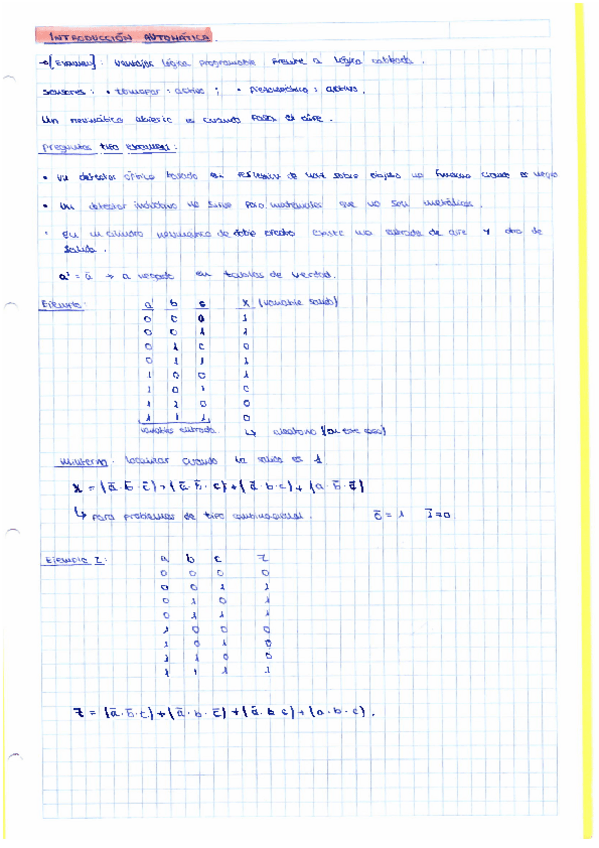 INTRODUCCIÓN AUTOMÁTICA.
→[Examen]: Ventajas lógica programable frente a lógica cableada.
Sensores: • termopar: activos ; • piezoeléctrico: activos.
Un neumático abierto es cuando pasa el aire.
Preguntas tipo examen:
• Un detector óptico basado en reflexión de luz sobre objeto no funciona cuando es negro
• Un detector inductivo no sirve para materiales que no sean metálicos.
• En un cilindro neumático de doble efecto existe una entrada de aire y otra de
salida.
a' = ā → a negada en tablas de verdad.
Ejemplo: a b c x (variable salida)
0 0 0 1
0 0 1 1
0 1 0 0
0 1 1 1
1 0 0 1
1 0 1 0
1 1 0 0
1 1 1 0
variables entrada ↳ aleatorio
Minterm: localizar cuando la salida es 1
X = (ā · b̄ · c̄) + (ā · b̄ · c) + (ā · b · c) + (a · b̄ · c̄)
↳ para problemas de tipo combinacional. 0̄ = 1 1̄ = 0
Ejemplo 2: a b c Z
0 0 0 0
0 0 1 1
0 1 0 1
0 1 1 1
1 0 0 0
1 0 1 0
1 1 0 0
1 1 1 1
Z = (ā · b̄ · c) + (ā · b · c̄) + (ā · b · c) + (a · b · c).